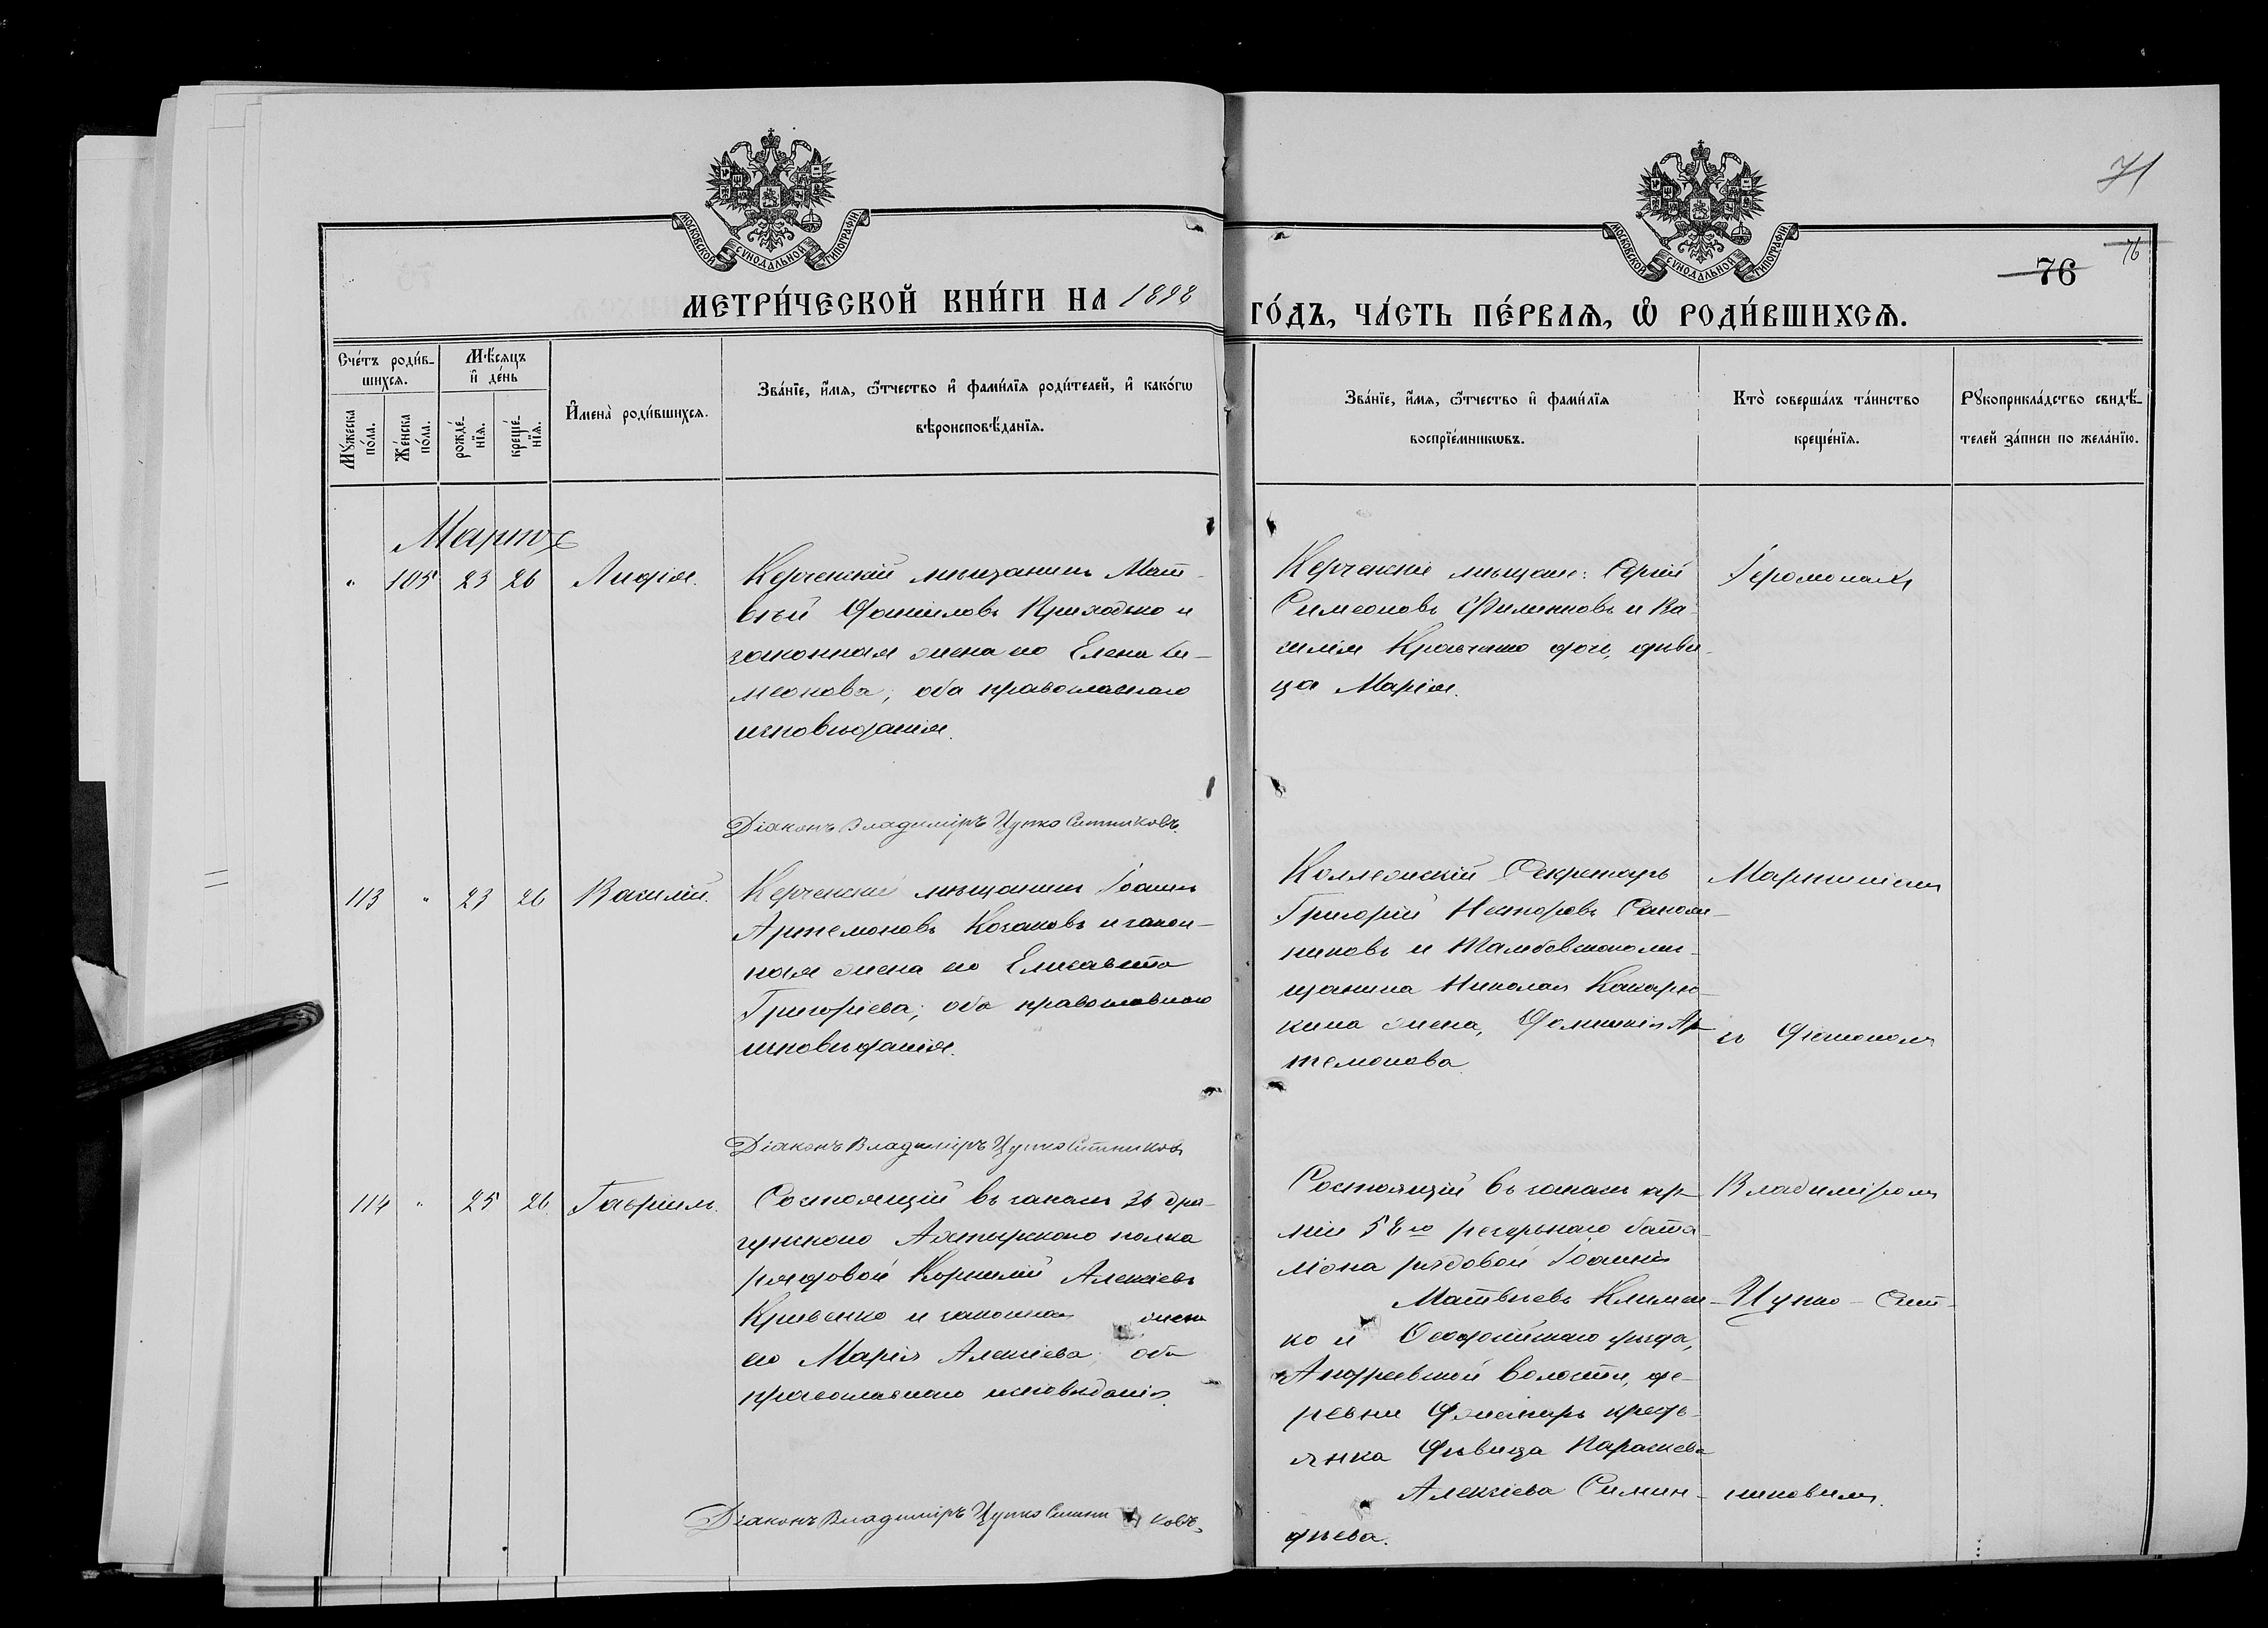 71
76
76
МОСКОВСКОЙ СУНОДАЛЬНОЙ ТИПОГРАФІИ
МОСКОВСКОЙ СУНОДАЛЬНОЙ ТИПОГРАФІИ
МЕТРИ́ЧЕСКОЙ КНИ́ГИ НА 1898 ГО́ДЪ, ЧА́СТЬ ПЕ́РВАѦ, Ѡ҆ РОДИ́ВШИХСѦ.
Сче́тъ роди́в-
шихсѧ.
Мѣ́сѧцъ
и҆ де́нь
Мꙋ́жеска
по́ла.
Же́нска
по́ла.
рожде́-
нїѧ.
креще́-
нїѧ.
И҆мена̀ роди́вшихсѧ.
Зва́нїе, и҆́мѧ, ѻ҆́тчество и҆ фами́лїѧ роди́телей, и҆ како́гѡ
вѣроисповѣ́данїѧ.
Зва́нїе, и҆́мѧ, ѻ҆́тчество и҆ фами́лїѧ
воспрїе́мникѡвъ.
Кто̀ соверша́лъ та́инство
креще́нїѧ.
Рꙋкоприкла́дство свидѣ́-
телей за́писи по жела́нїю.
Мартъ
" 105 23 26 Лидія.
Керченскій мѣщанинъ Мат-
вѣй Даніиловъ Приходько и
законная жена его Елена Си-
меонова; оба православнаго
исповѣданія.
Діаконъ Владиміръ Цупко Ситниковъ.
Керченскіе мѣщане: Сергій
Симеоновъ Филипповъ и Ва-
силія Кравченко дочь, дѣви-
ца Марія.
Іеромонахъ
113 " 23 26 Василій.
Керченскій мѣщанинъ Іоаннъ
Артемоновъ Козаковъ и закон-
ная жена его Елисавета
Григоріева; оба православнаго
исповѣданія.
Діаконъ Владиміръ Цупко Ситниковъ
Коллежскій Секретарь
Григорій Несторовъ
никовъ и Тамбовскаго мѣ-
щанина Николая
кина жена, Домникія Ар-
темонова.
Мартиніанъ
съ Діакономъ
114 " 25 26 Гавріилъ.
Состоящій въ запасѣ 36 дра-
гунскаго Ахтырскаго полка
рядовой Корнилій Алексіевъ
Кривенко и законная жена
его Марія Алексіева; оба
православнаго исповѣданія.
Діаконъ Владиміръ Цупко Ситниковъ.
Состоящій въ запасѣ ар-
міи 58го резервнаго бата-
ліона рядовой Іоаннъ
Матвѣевъ Климен-
ко и Ѳеодосійскаго уѣзда,
Андреевской волости, де-
ревни крестья-
янка дѣвица Параскева
Алексіева Симин-
дѣева.
Владиміромъ
Цупко-Сит-
никовымъ.